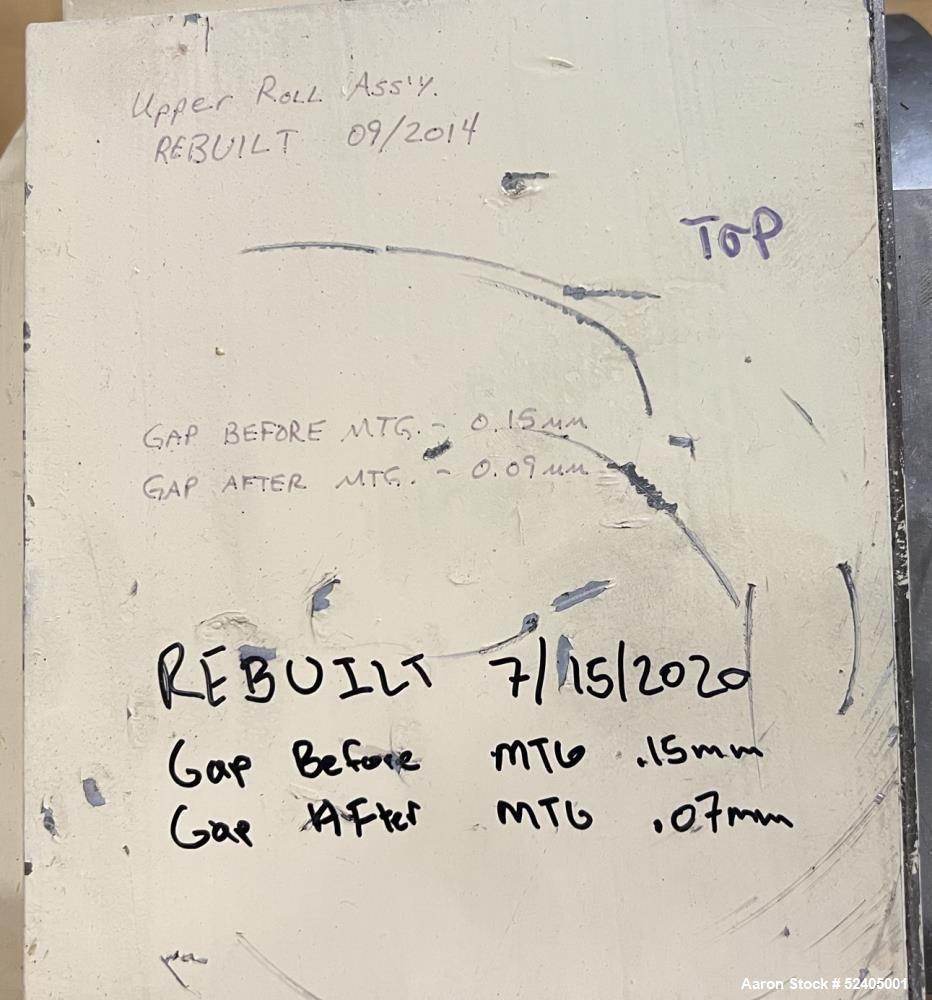 Upper Roll Ass'y.
REBUILT 09/2014
TOP
GAP BEFORE MTG. - 0.15mm
GAP AFTER MTG. - 0.09mm
REBUILT 7/15/2020
Gap Before MTG .15mm
Gap After MTG .07mm
Aaron Stock # 52405001